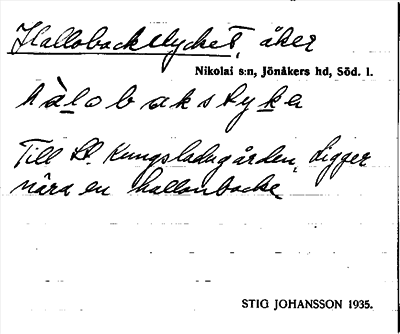 Hallobackstycket, åker
Nikolai s:n, Jönåkers hd, Söd. l.
hàlobakstyka
Till St. Kungsladugården. Ligger
nära en hallonbacke
STIG JOHANSSON 1935.